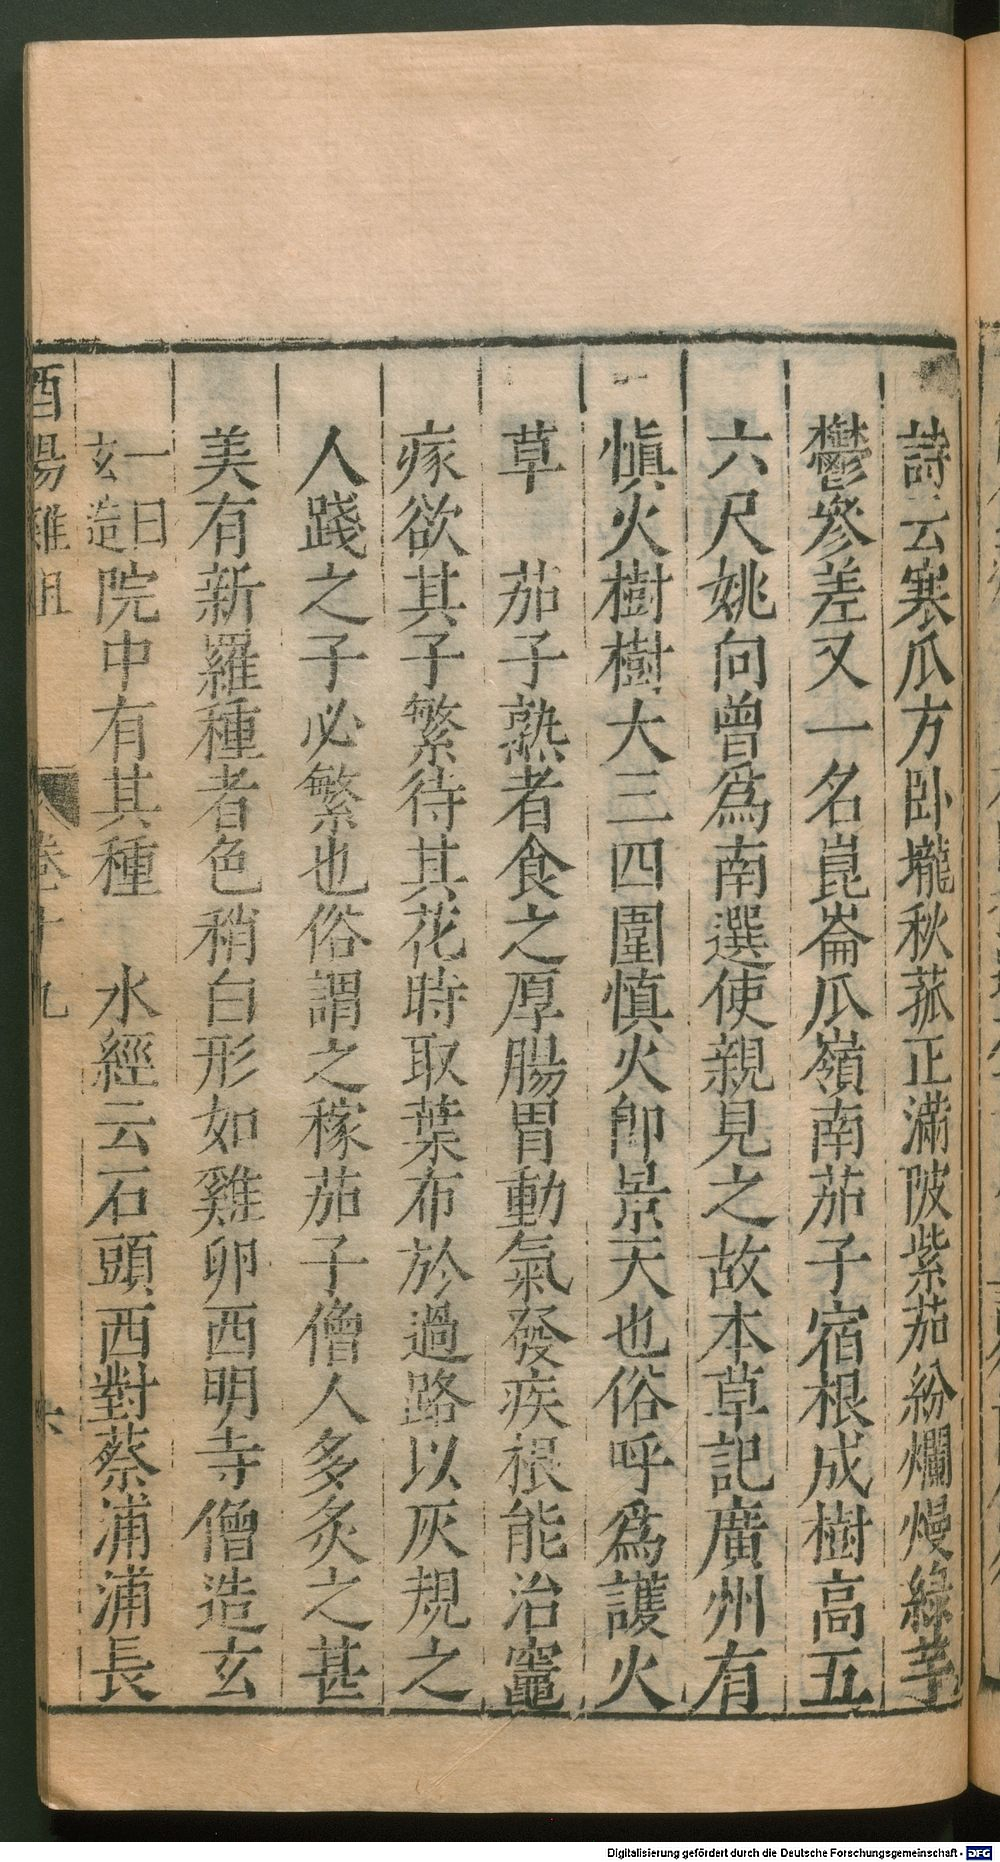 詩云寒瓜方卧壠秋菰正滿陂紫茄紛爛熳綠芋
鬱參差又一名崑崙瓜嶺南茄子宿根成樹高五
六尺姚向曾爲南選使親見之故本草記廣州有
愼火樹樹大三四圍慎火卽景天也俗呼爲護火
草　茄子熟者食之厚腸胃動氣發疾根能治竈
瘃欲其子繁待其花時取葉布於過路以灰規之
人踐之子必繁也俗謂之稼茄子僧人多炙之甚
美有新羅種者色稍白形如雞卵西明寺僧造玄
一曰
玄造
院中有其種　水經云石頭西對蔡浦浦長
酉陽雜俎　卷十九　六
Digitalisierung gefördert durch die Deutsche Forschungsgemeinschaft - DFG